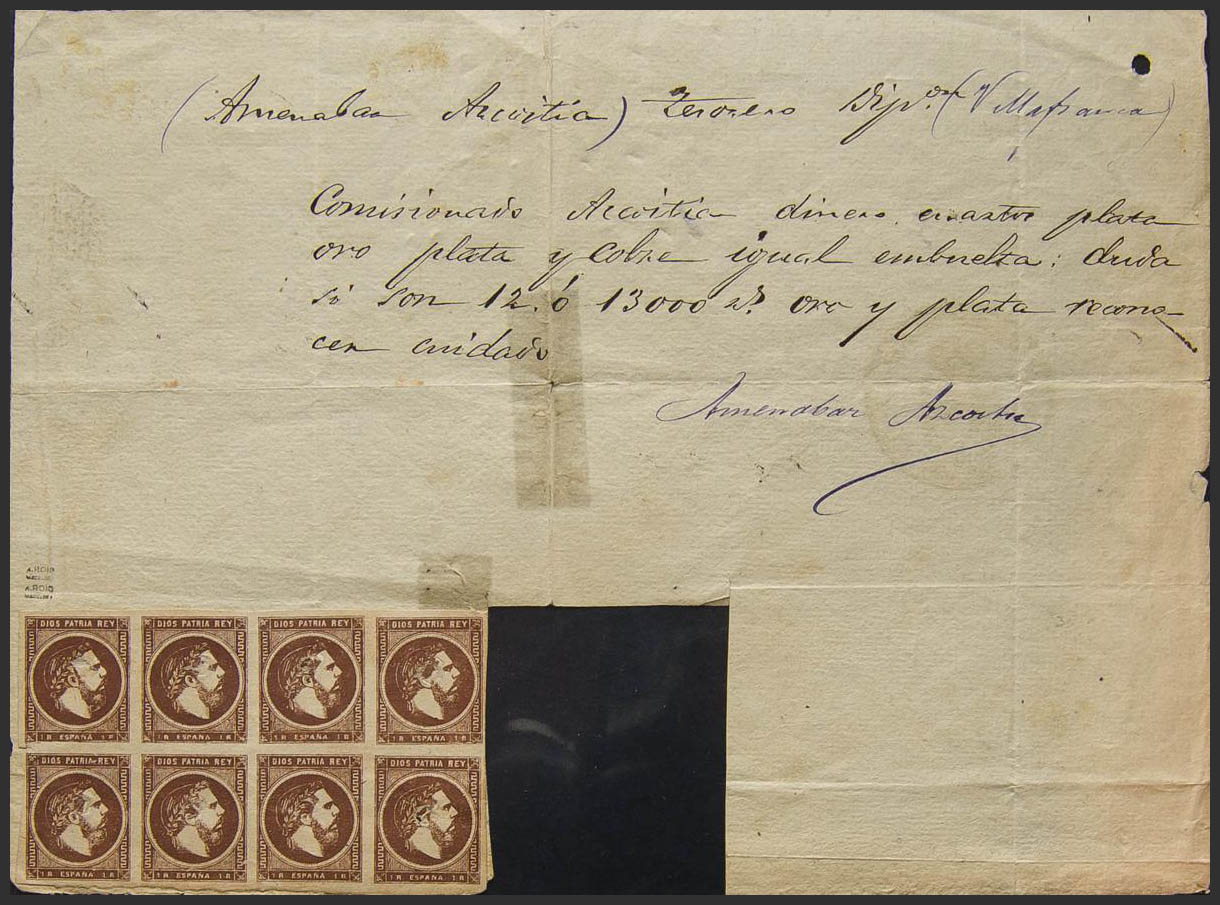 (Amenabar Azcoitia) Tesorero Dip.on (Villafranca)
Comisionado Azcoitia dinero plata
oro plata y cobre igual embuelta: duda
si son 12. ó 13000 rs. oro y plata recono-
cen cuidado
Amenabar Azcoitia
A.ROIG
A.ROIG
DIOS PATRIA REY DIOS PATRIA REY DIOS PATRIA REY DIOS PATRIA REY
1 R ESPAÑA 1 R 1 R ESPAÑA 1 R 1 R ESPAÑA 1 R 1 R ESPAÑA 1 R
DIOS PATRIA REY DIOS PATRIA REY DIOS PATRIA REY DIOS PATRIA REY
1 R ESPAÑA 1 R 1 R ESPAÑA 1 R 1 R ESPAÑA 1 R 1 R ESPAÑA 1 R